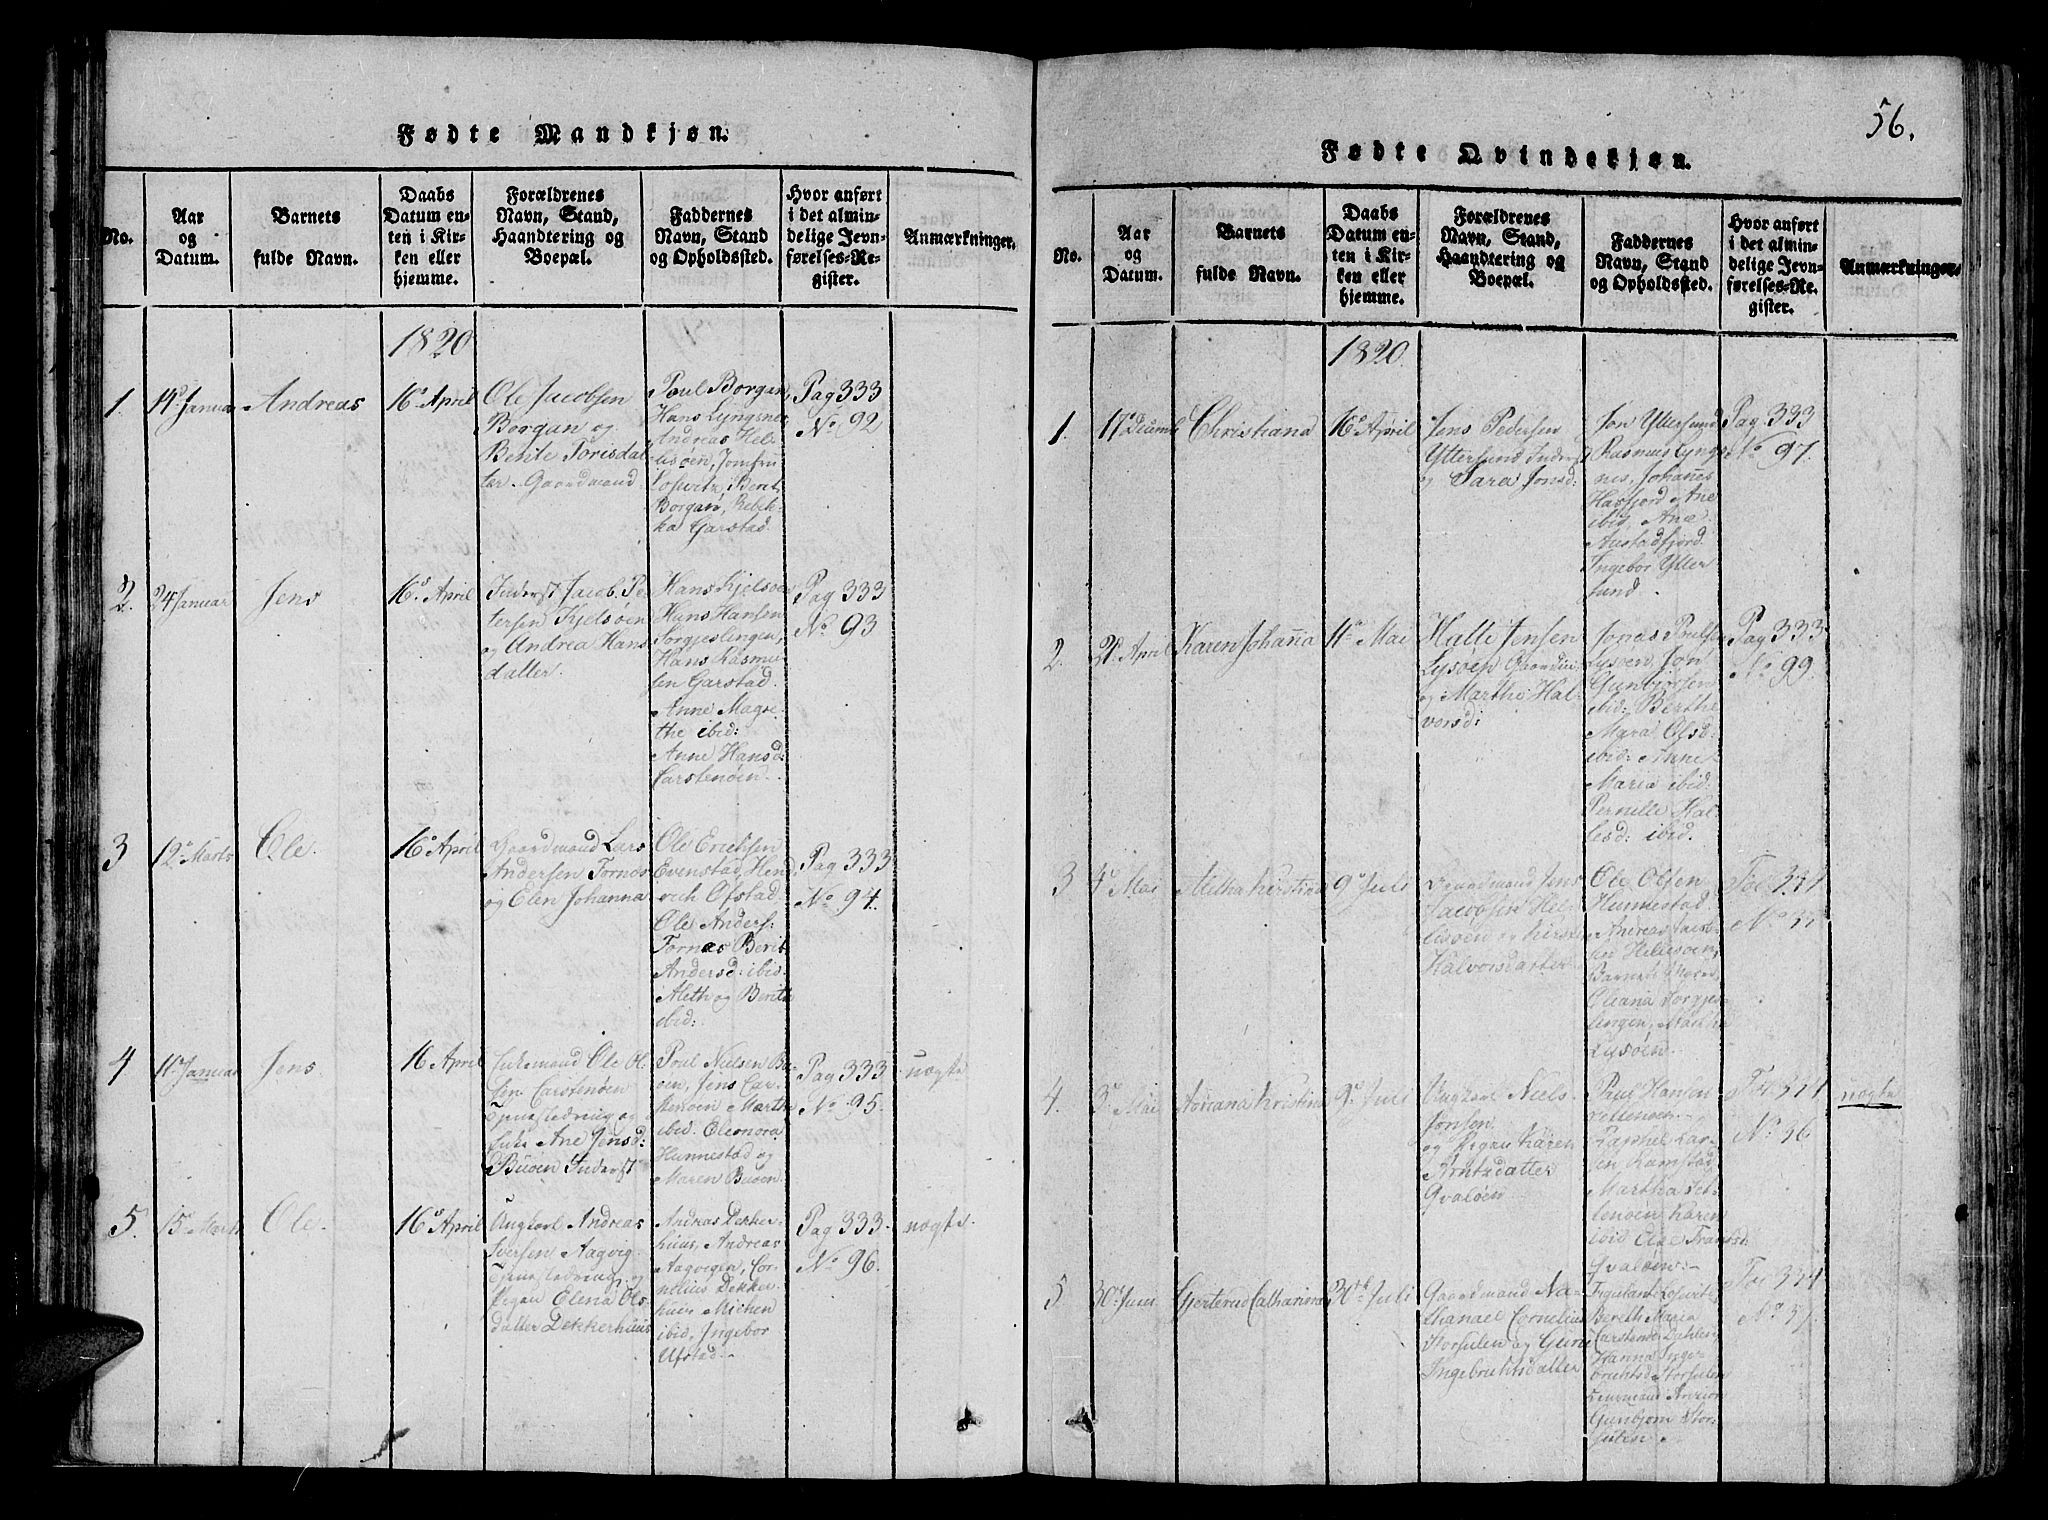 Fødte Mandkjøn.
No.
Aar
og
Datum.
Barnets
fulde Navn.
Daabs
Datum en-
ten i Kir-
ken eller
hjemme.
Forældrenes
Navn, Stand,
Haandtering og
Boepæl.
Faddernes
Navn, Stand
og Opholdssted.
Hvor anført
i det almin-
delige Jevn-
førelses-Re-
gister.
Anmærkninger.
1820
1.
14 Januar
Andreas
16 April
Ole Jacobsen
Borgan og
Berite Torisdat
ter. Gaardmand
Poul Borgan,
Hans Lyngsnes
Andreas Hel-
lisøen, Jomfru
Berit
Borgan, Rebek-
ka Garstad
Pag 333
No 92
2.
24 Januar
Jens
16 April
Inderst Jacob Pe-
tersen Kjelsøen
og Andrea Hans
datter.
Hans Kjelsøe
Hans Hansen
Torgjeslingen,
Hans Rasmu-
sen Garstad.
Anne Magre-
the ibid:
Anne Hansd
Carstenøen.
Pag 333
No 93
3
12 Marts
Ole.
16 April
Gaardmand Lars
Andersen Fornes
og Elen Johanna
Ole Erichsen
Evenstad, Hend
rich Ofstad.
Ole Anders:
Fornes Berit
Andersd: ibid.
Aleth og Berith
ibid:
Pag 333
No 94.
4
11 Januar
Jens
16 April
Enkemand Ole Ol-
sen Carstenøen
og
Enke Ane Jensd:
Buøen Inderst
Poul Nielsen Bu-
øen, Jens Car-
stenøen Marth
ibid. Eleonora
Hunnestad og
Maren Buøen.
Pag 333
No 95.
uægte
5.
15 Marts
Ole.
16 April
Ungkarl Andreas
Iversen Aagvig
og
Pigen Elena Ols-
datter Dekkerhuus
Andreas Dekker-
huus, Andreas
Aagvigen, Cor-
nelius Dekker-
huus Michen
ibid, Ingebor
Ufstad.
Pag 333.
No 96.
uægte.
56.
Fødte Qvindekjøn.
No.
Aar
og
Datum.
Barnets
fulde Navn.
Daabs
Datum en-
ten i Kir-
ken eller
hjemme.
Forældrenes
Navn, Stand,
Haandtering og
Boepæl.
Faddernes
Navn, Stand
og Opholdssted.
Hvor anført
i det almin-
delige Jevn-
førelses-Re-
gister.
Anmærkninger.
1820.
1.
17 Decemb
Christiana
16 April
Jens Pedersen
Yttersund Inderst
og Sara Jonsd:
Jon Yttersund
Rasmus Lyngs
nes, Johannes
Hasfjord Ane
ibid, Ane
Austadfjord
Ingebor Ytter
sund.
Pag 333
No 97.
2.
21 April
Karen Johanna
11 Mai
Halle Jensen
Lysøen Gaardm
og Marthe Hal-
vorsd:
Jonas Poulsen
Lysøen, Jon
Gunbjørsen
ibid: Berthe
Mara Olsd.
ibid: Anne
Maria ibid.
Pernille Hal-
lesd: ibid.
Pag 333
No 99.
3
4 Mai
Metha Kirstina
9 Juli
Gaardmand Jens
Jacobsen Hel-
lisøen og Kirsten
Halvorsdatter
Ole Olsen
Hunnestad
Andreas Jacob-
sen Hellisøen,
Oleana Torgjes-
lingen, Martha
Lysøen
Fol 334
4.
3 Mai
Kristina
9 Juli
Ungkarl Niels
Jonsen
og Pigen Karen
Arntsdatter
Qvaløen
Paul Hansen
Ramstad
Martha
Karen
ibid Fransd.
Qvaløen.
Fol 334
No 36
uægte
5.
30 Juni
Gjertrud Catharina
30 Juli
Gaardmand Na-
thanael Cornelius
Storsulen og Guru
Ingebrichtsdatter
Bereth Maria
Hanna Inge-
brichtsd Storsulen
Gunbjorn Stor-
sulen.
Fol 334
No 37